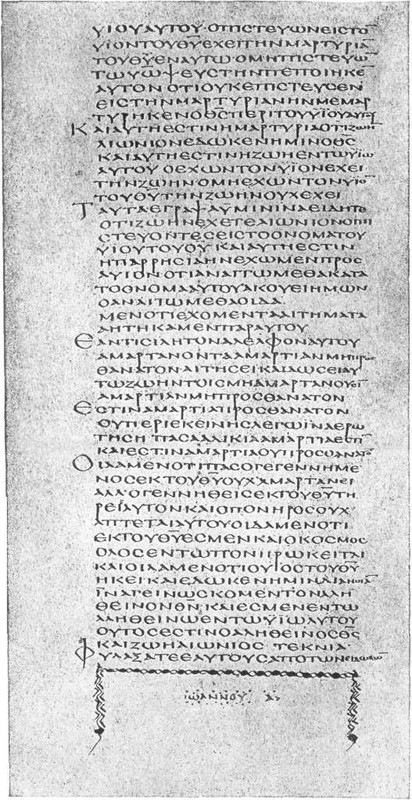 ΥΙΟΥΑΥΤΟΥ·ΟΠΙCΤΕΥΩΝΕΙCΤΟ̅
ΥΙΟΝΤΟΥΘ̅Υ̅ΕΧΕΙΤΗΝΜΑΡΤΥΡΙΑ̅
ΤΟΥΘ̅Υ̅ΕΝΑΥΤΩ·ΟΜΗΠΙCΤΕΥΩ̅
ΤΩΥ̅Ω̅ΨΕΥCΤΗΝΠΕΠΟΙΗΚΕ̅
ΑΥΤΟΝΟΤΙΟΥΚΕΠΙCΤΕΥCΕΝ
ΕΙCΤΗΝΜΑΡΤΥΡΙΑΝΗΝΜΕΜΑΡ
ΤΥΡΗΚΕΝΟΘ̅C̅ΠΕΡΙΤΟΥΥΙΟΥΑΥΤΟΥ
ΚΑΙΑΥΤΗΕCΤΙΝΗΜΑΡΤΥΡΙΑΟΤΙΖΩΗ̅
ΑΙΩΝΙΟΝΕΔΩΚΕΝΗΜΙΝΟΘ̅C̅
ΚΑΙΑΥΤΗΕCΤΙΝΗΖΩΗΕΝΤΩΥΙΩ
ΑΥΤΟΥ ΟΕΧΩΝΤΟΝΥΙΟΝΕΧΕΙ
ΤΗΝΖΩΗΝΟΜΗΕΧΩΝΤΟΝΥΙΟ̅
ΤΟΥΘ̅Υ̅ΤΗΝΖΩΗΝΟΥΧΕΧΕΙ
ΤΑΥΤΑΕΓΡΑΨΑΥΜΙΝΙΝΑΕΙΔΗΤΕ
ΟΤΙΖΩΗΝΕΧΕΤΕΑΙΩΝΙΟΝΟΙΠΙ
CΤΕΥΟΝΤΕCΕΙCΤΟΟΝΟΜΑΤΟΥ
ΥΙΟΥΤΟΥΘ̅Υ̅ ΚΑΙΑΥΤΗΕCΤΙΝ
ΗΠΑΡΡΗCΙΑΗΝΕΧΩΜΕΝΠΡΟC
ΑΥΤΟΝΟΤΙΑΝΑΙΤΩΜΕΘΑΚΑΤΑ
ΤΟΟΝΟΜΑΑΥΤΟΥΑΚΟΥΕΙΗΜΩΝ
ΟΑΝΑΙΤΩΜΕΘΑΟΙΔΑ
ΜΕΝΟΤΙΕΧΟΜΕΝΤΑΑΙΤΗΜΑΤΑ
ΑΗΤΗΚΑΜΕΝΠΑΡΑΥΤΟΥ
ΕΑΝΤΙCΙΔΗΤΟΝΑΔΕΛΦΟΝΑΥΤΟΥ
ΑΜΑΡΤΑΝΟΝΤΑΑΜΑΡΤΙΑΝΜΗΠΡΟC
ΘΑΝΑΤΟΝΑΙΤΗCΕΙΚΑΙΔΩCΕΙΑΥ
ΤΩΖΩΗΝΤΟΙCΜΗΑΜΑΡΤΑΝΟΥCΙ
ΑΜΑΡΤΙΑΝΜΗΠΡΟCΘΑΝΑΤΟΝ
ΕCΤΙΝΑΜΑΡΤΙΑΠΡΟCΘΑΝΑΤΟΝ
ΟΥΠΕΡΙΕΚΕΙΝΗCΛΕΓΩΙΝΑΕΡΩ
ΤΗCΗ ΠΑCΑΑΔΙΚΙΑΑΜΑΡΤΙΑΕCΤΙ
ΚΑΙΕCΤΙΝΑΜΑΡΤΙΑΟΥΠΡΟCΘΑΝΑΤΟ̅
ΟΙΔΑΜΕΝΟΤΙΠΑCΟΓΕΓΕΝΝΗΜΕ
ΝΟCΕΚΤΟΥΘ̅Υ̅ΟΥΧΑΜΑΡΤΑΝΕΙ
ΑΛΛΟΓΕΝΝΗΘΕΙCΕΚΤΟΥΘ̅Υ̅ΤΗ
ΡΕΙΑΥΤΟΝΚΑΙΟΠΟΝΗΡΟCΟΥΧ
ΑΠΤΕΤΑΙΑΥΤΟΥΟΙΔΑΜΕΝΟΤΙ
ΕΚΤΟΥΘ̅Υ̅ΕCΜΕΝΚΑΙΟΚΟCΜΟC
ΟΛΟCΕΝΤΩΠΟΝΗΡΩΚΕΙΤΑΙ
ΚΑΙΟΙΔΑΜΕΝΟΤΙΟΥΙΟCΤΟΥΘ̅Υ̅
ΗΚΕΙΚΑΙΕΔΩΚΕΝΗΜΙΝΔΙΑΝΟΙΑ̅
ΙΝΑΓΕΙΝΩCΚΟΜΕΝΤΟΝΑΛΗ
ΘΕΙΝΟΝΘ̅Ν̅·ΚΑΙΕCΜΕΝΕΝΤΩ
ΑΛΗΘΕΙΝΩΕΝΤΩΥΙΩΑΥΤΟΥ
ΟΥΤΟCΕCΤΙΝΟΑΛΗΘΕΙΝΟCΘ̅C̅
ΚΑΙΖΩΗΑΙΩΝΙΟC ΤΕΚΝΙΑ
ΦΥΛΑΞΑΤΕΕΑΥΤΟΥCΑΠΟΤΩΝΕΙΔΩΛΩΝ
ΙΩΑΝΝΟΥ Α